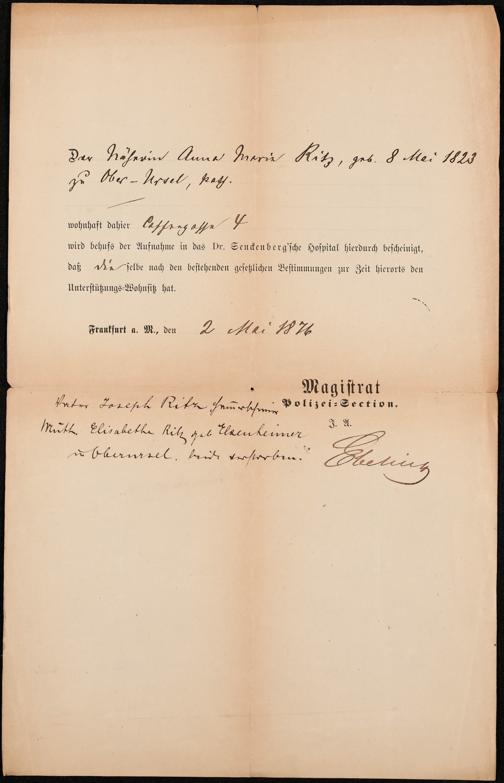 Der Näherin Anna Maria Ritz, geb. 8 Mai 1823
zu Ober-Ursel, kath.
wohnhaft dahier 4
wird behufs der Aufnahme in das Dr. Senckenberg'sche Hospital hierdurch bescheinigt,
daß dieselbe nach den bestehenden gesetzlichen Bestimmungen zur Zeit hierorts den
Unterstützungs-Wohnsitz hat.
Frankfurt a. M., den 2 Mai 1876
Magistrat
Polizei-Section.
J. A.
Vater Joseph Ritz
Mutter Elisabetha Ritz geb Elsenheimer
zu Oberursel, beide verstorben.